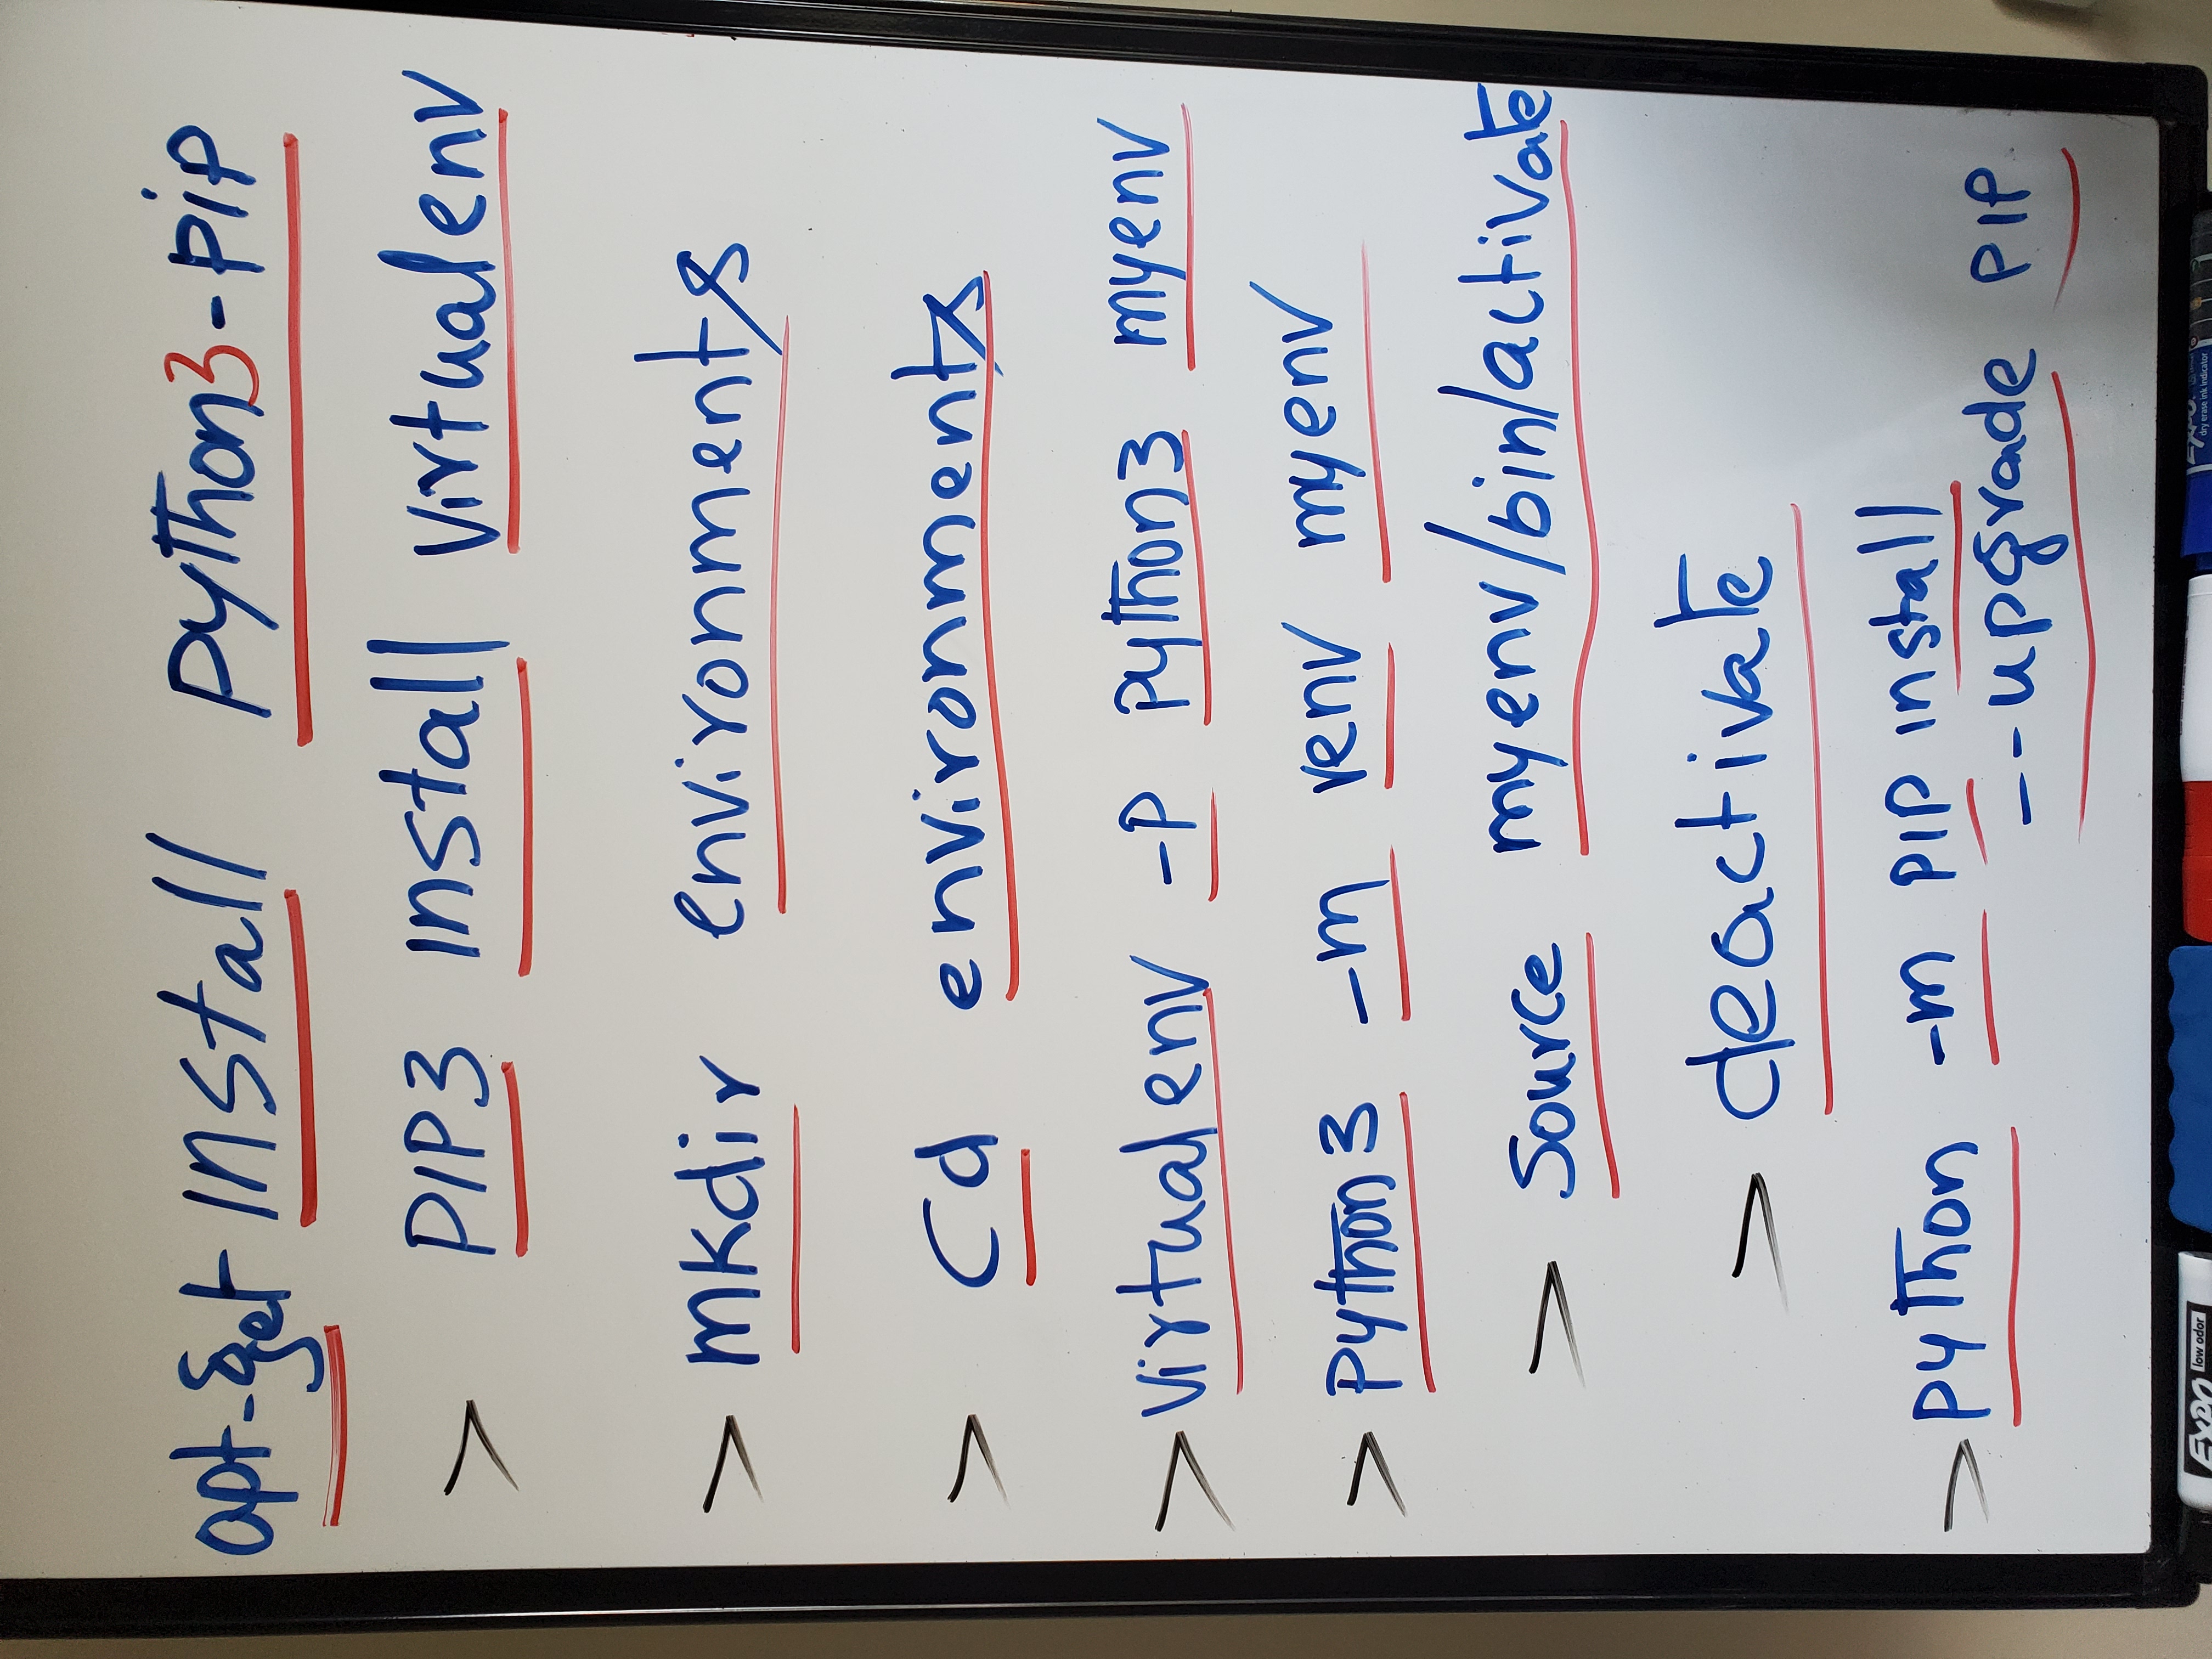 apt-get install python3-pip
> PIP3 install virtualenv
> mkdir environments
> cd environments
> virtualenv -p python3 myenv
> python3 -m venv myenv
> source myenv/bin/activate
> deactivate
> python -m pip install
--upgrade pip
EXPO low odor
EXPO
dry erase ink indicator